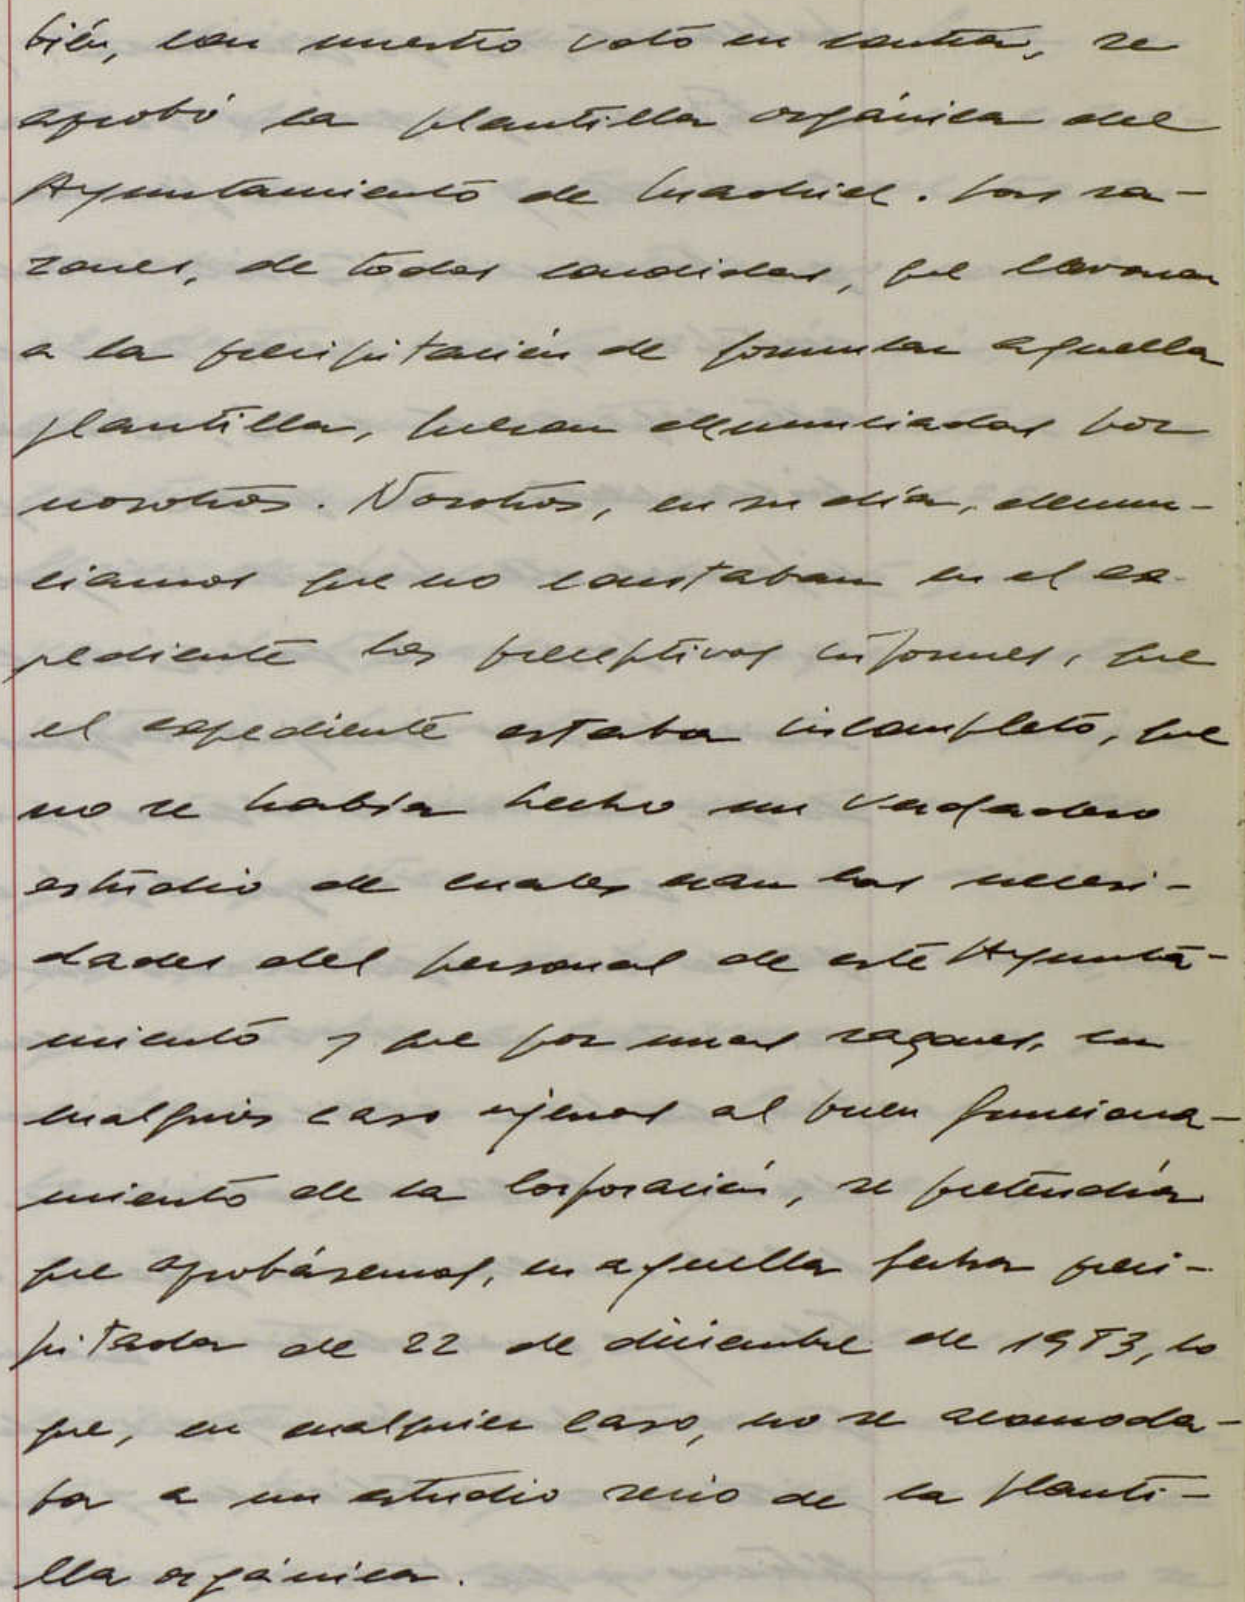 bién, con nuestro voto en contra, se
aprobó la plantilla orgánica del
Ayuntamiento de Madrid. Las ra-
zones, de todos conocidas, que llevaron
a la precipitación de formular aquella
plantilla, fueron denunciadas por
nosotros. Nosotros, en su día, denun-
ciamos que no constaban en el ex-
pediente los preceptivos informes, que
el expediente estaba incompleto, que
no se había hecho un verdadero
estudio de cuales eran las necesi-
dades del personal de este Ayunta-
miento y que por unas razones, en
cualquier caso ajenas al buen funciona-
miento de la Corporación, se pretendía
que aprobásemos, en aquella fecha preci-
pitada de 22 de diciembre de 1983, lo
que, en cualquier caso, no se acomoda-
ba a un estudio serio de la planti-
lla orgánica.